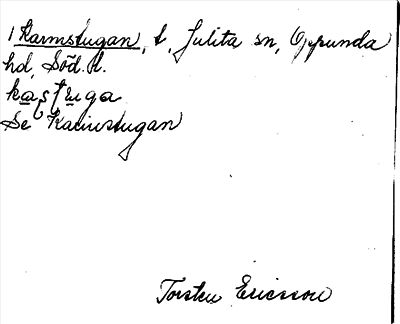 1 Karmstugan, t, Julita sn, Oppunda
hd, Söd. l.
Se Karinstugan
Torsten Ericsson